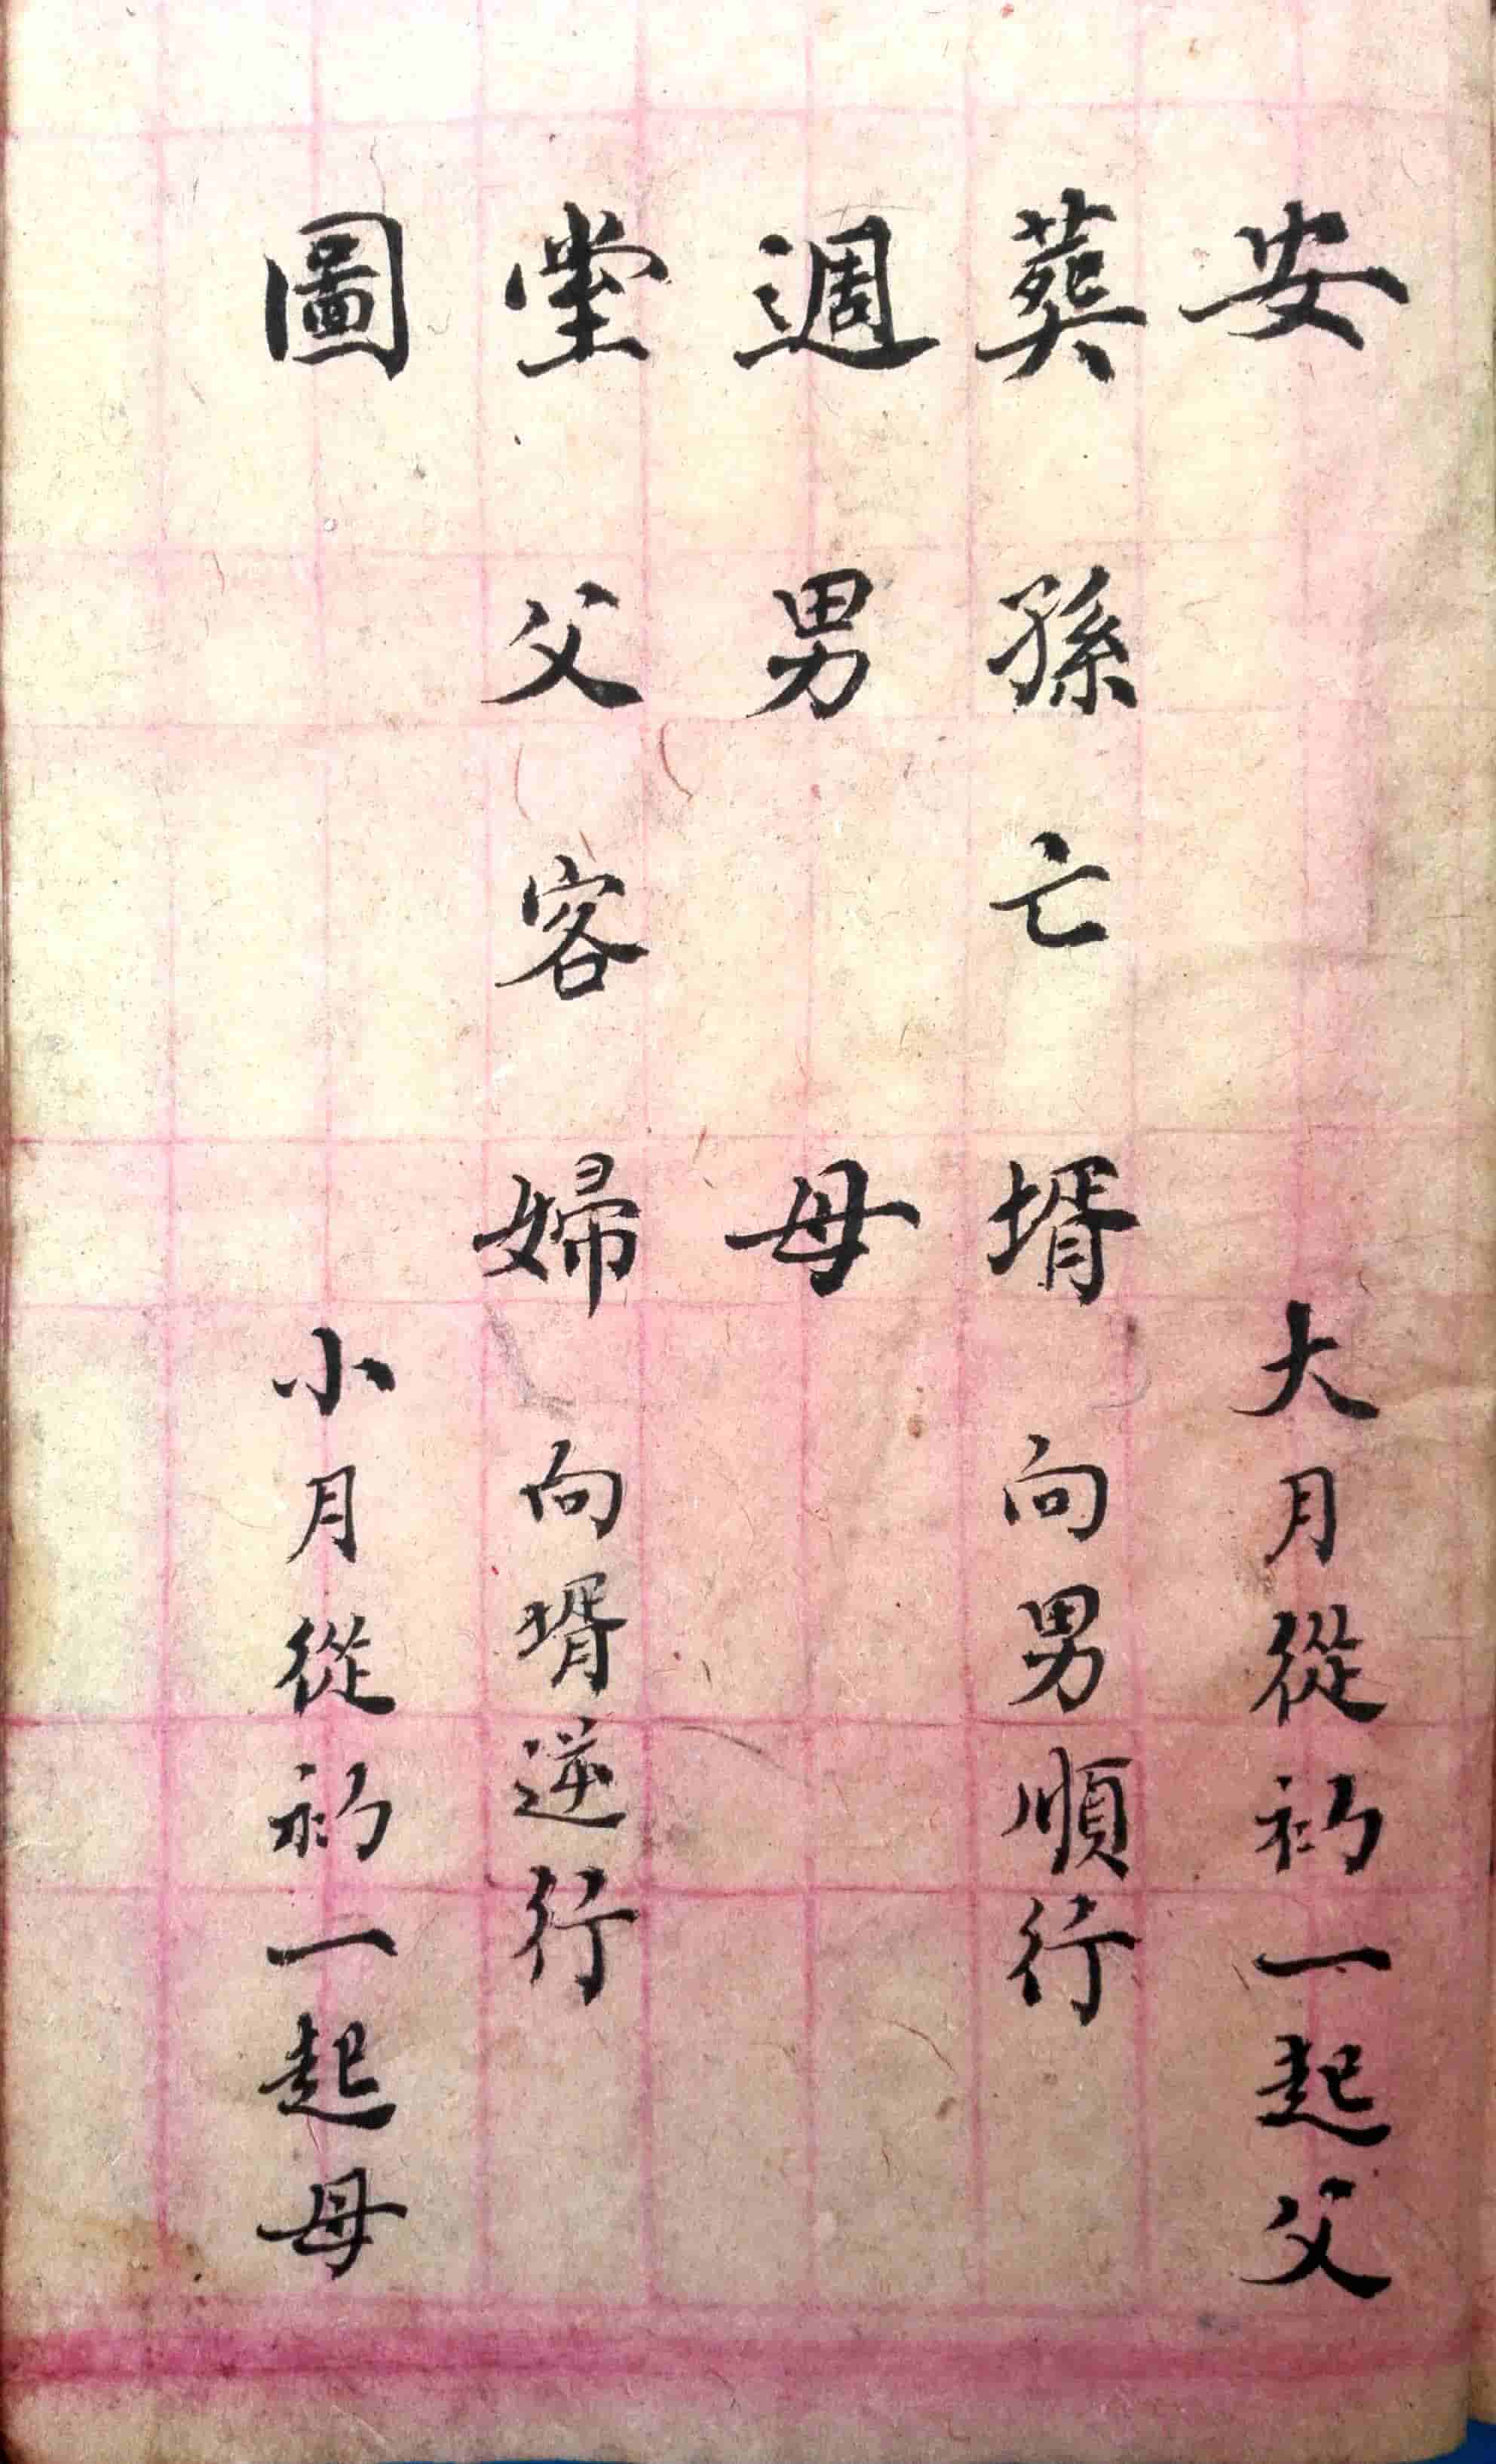 安葬週堂圖
大月從初一起父
向男順行
孫亡壻
男母
父客婦
向壻逆行
小月從初一起母